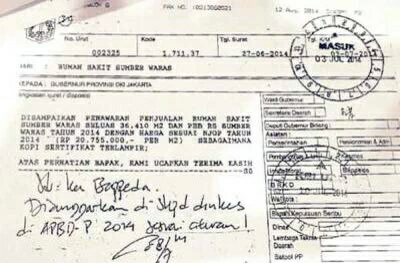 FAX NO. :
12 Aug. 2014
No. Urut
Kode
Tgl. Surat
002325
1.711.37
27-06-2014
MASUK
03 JUL 2014
: RUMAH SAKIT SUMBER WARAS
KEPADA : GUBERNUR PROVINSI DKI JAKARTA
Wakil Gubernur
Sekretaris Daerah
DISAMPAIKAN PENAWARAN PENJUALAN RUMAH SAKIT
SUMBER WARAS SELUAS 36,410 M2 DAN PBB RS SUMBER
WARAS TAHUN 2014 DENGAN HARGA SESUAI NJOP TAHUN
2014 (RP 20.755.000,- PER M2) SEBAGAIMANA
KOPI SERTIFIKAT TERLAMPIR;
ATAS PERHATIAN BAPAK, KAMI UCAPKAN TERIMA KASIH
Asisten :
Pemerintahan
Perekonomian & Adm
Pembangunan
Bappeda
BPKD
2014
Walikota
Bupati Kepulauan Seribu
Dinas
Lembaga Teknis
Daerah
Satpol PP
Yth. Ka Bappeda.
Dianggarkan di Skpd dinkes
di APBD-P 2014 sesuai aturan!